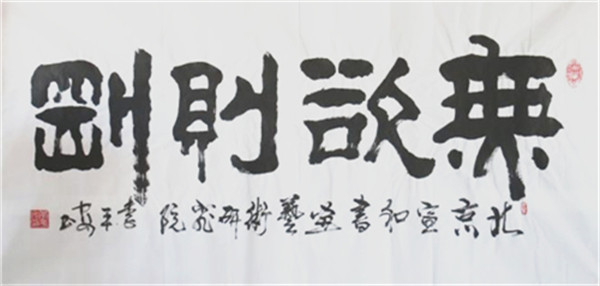 無欲則剛
北京宣和書畫藝術研究院 李平安